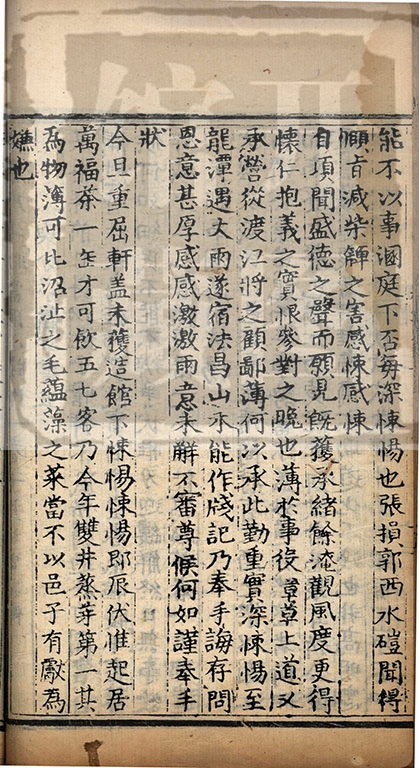 能不以事溷庭下否每深悚惕也張損郭西水磑聞得
頋㫖減柴觧之害感悚感悚
自頃聞盛德之聲而願見旣獲承緒餘淹觀風度更得
懷仁抱義之實恨參對之晚也薄於事役草草上道又
承營從渡江將之顧鄙薄何以承此勤重實深悚惕至
龍潭遇大雨遂宿法昌山未能作牋記乃奉手誨存問
恩意甚厚感感激激雨意未解不審尊候何如謹奉手
狀
今旦重屈軒盖未獲造館下悚惕悚惕即辰伏惟起居
萬福茶一缶才可飲五七客乃今年雙井蒸芽第一其
為物薄可比沼沚之毛蘊藻之菜當不以邑子有獻為
嫌也